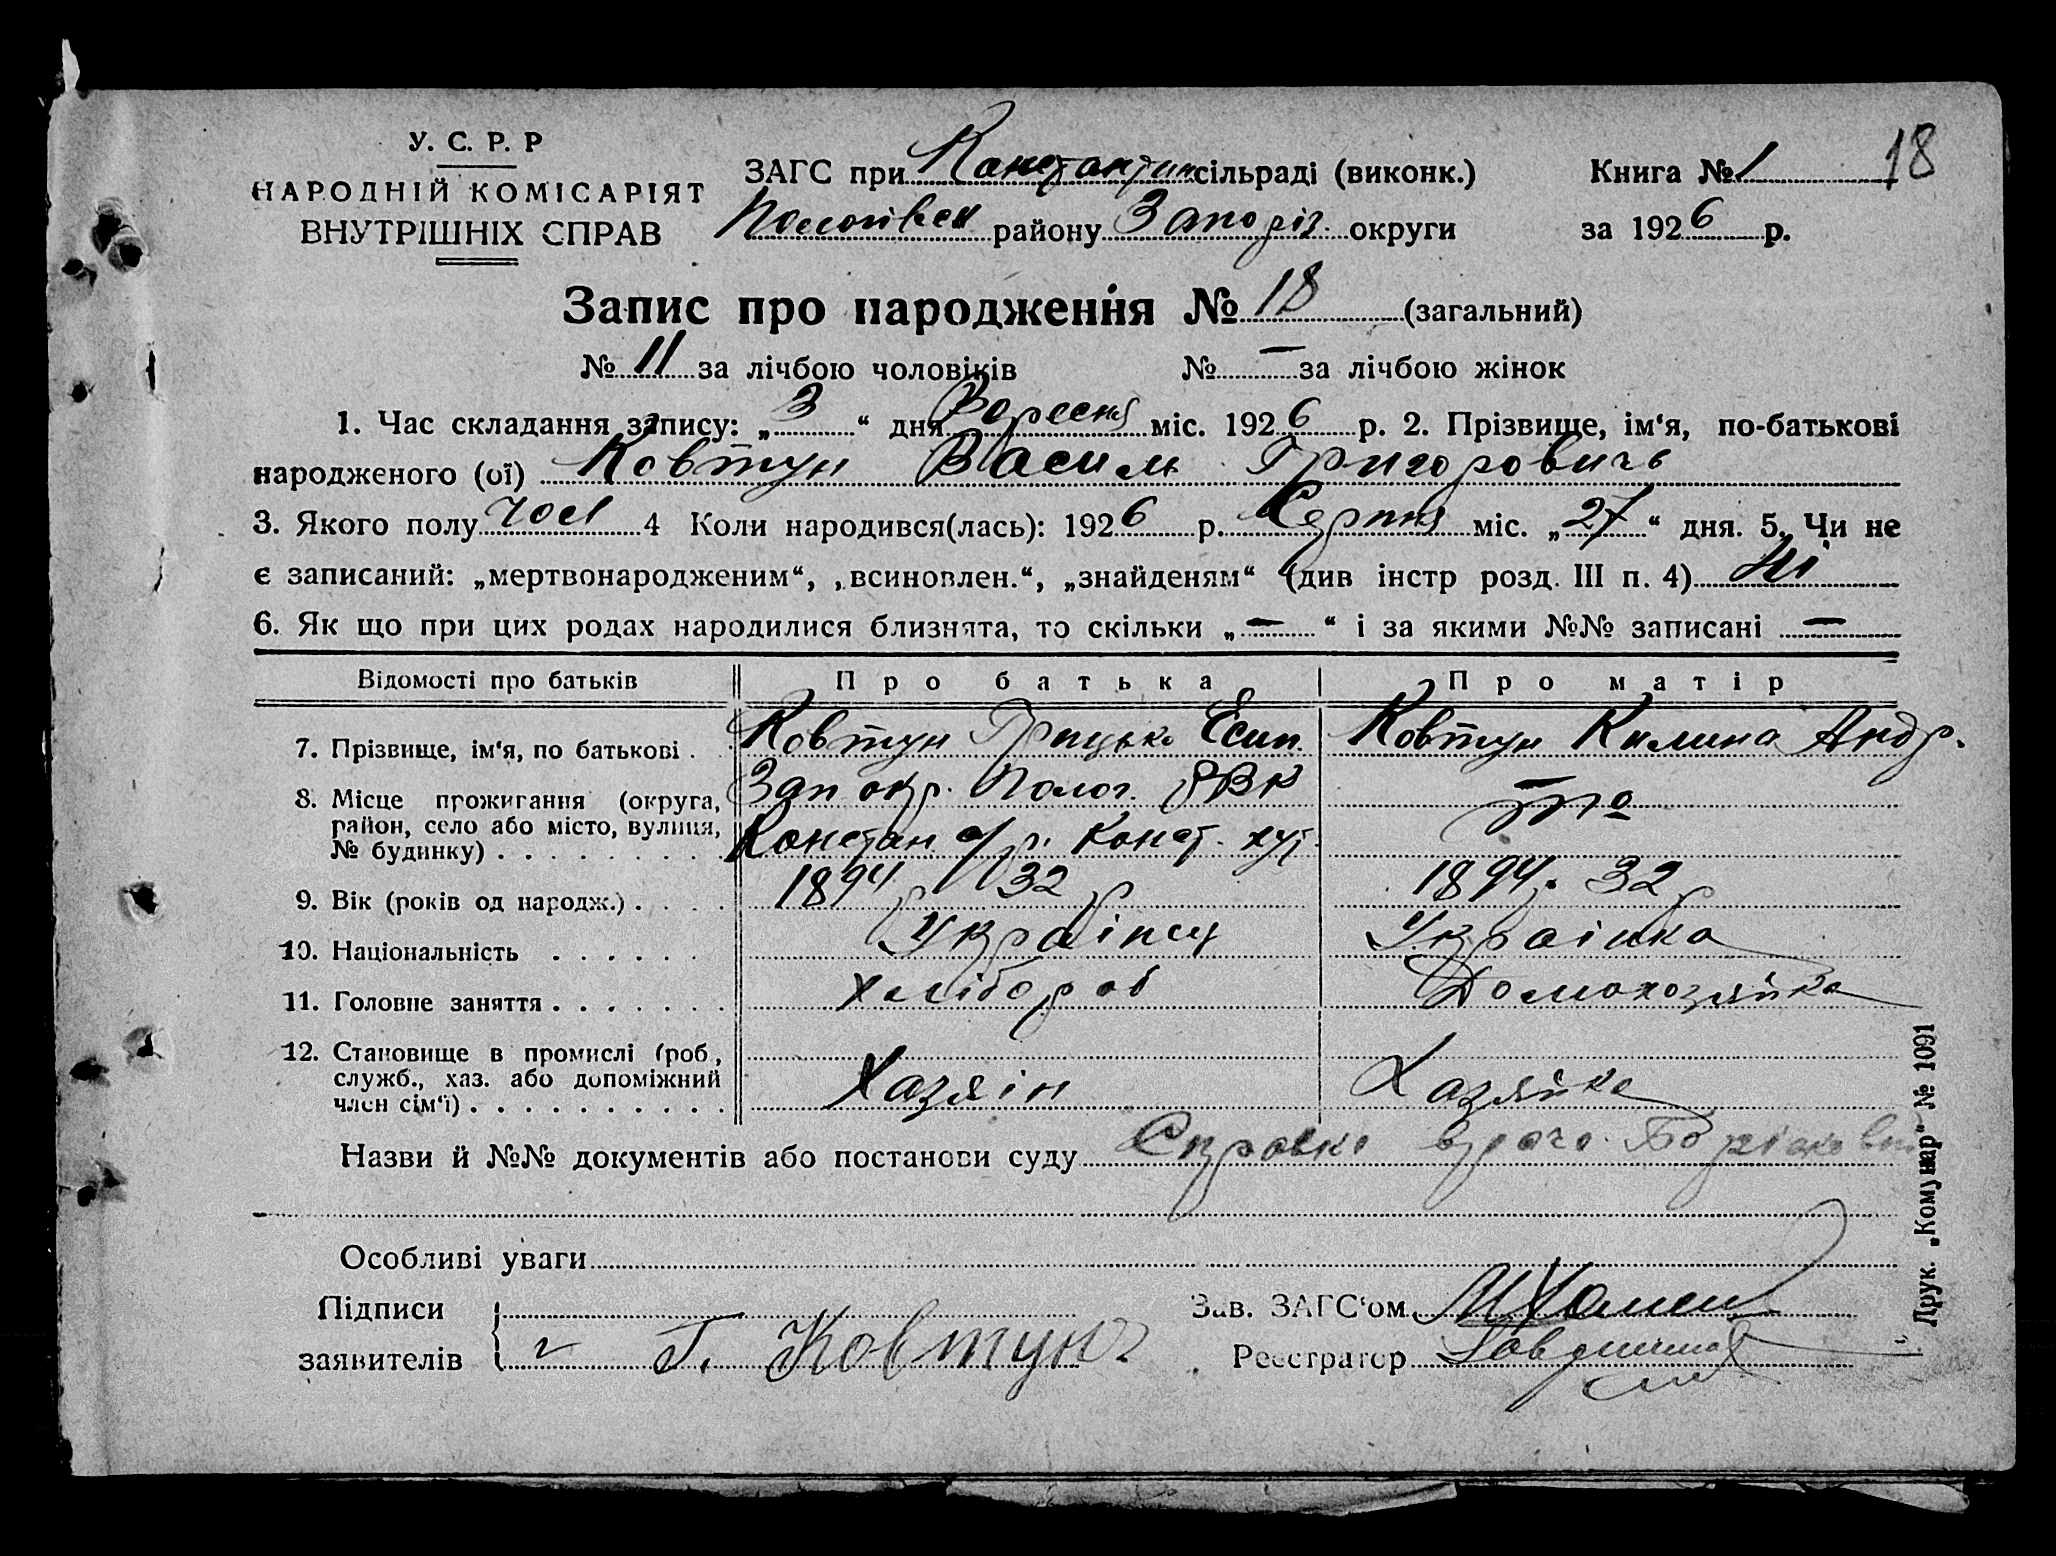 У. С. Р. Р
НАРОДНІЙ КОМІСАРІЯТ
ВНУТРІШНІХ СПРАВ
ЗАГС при Константин сільраді (виконк.)
Пологівськ району Запоріз. округи
Книга № 1
18
за 1926 р.
Запис про народження № 18 (загальний)
№ 11 за лічбою чоловіків № — за лічбою жінок
1. Час складання запису: „3“ дня Вересня міс. 1926 р. 2. Прізвище, ім‘я, по-батькові
народженого (ої) Ковтун Василь Григоровичь
3. Якого полу чол 4 Коли народився(лась): 1926 р. Серпня міс. „27“ дня. 5. Чи не
є записаний: „мертвонародженим“, „всиновлен.“, „знайденям“ (див інстр розд. III п. 4) Ні
6. Як що при цих родах народилися близнята, то скільки „—“ і за якими №№ записані —
Відомості про батьків Про батька Про матір
7. Прізвище, ім‘я, по батькові . Ковтун Грицько Єсип. Ковтун Килина Андр.
8. Місце прожигання (округа, район, село або місто, вулиця, № будинку) Зап окр. Полог. РВК
Констан с/р. Конст. хут. —то
9. Вік (років од народж.) 1894 р 32 р 1894. 32 р
10. Національність Українец Українка
11. Головне заняття Хлібороб Домохозяйка
12. Становище в промислі (роб., служб., хаз. або допоміжний член сім‘ї) Хазяін Хазяйка
Назви й №№ документів або постанови суду Справка врача
Особливі уваги
Підписи
заявителів Г. Ковтун
Зав. ЗАГС‘ом
Реєстратор
Друк. „Комунар“ № 1091